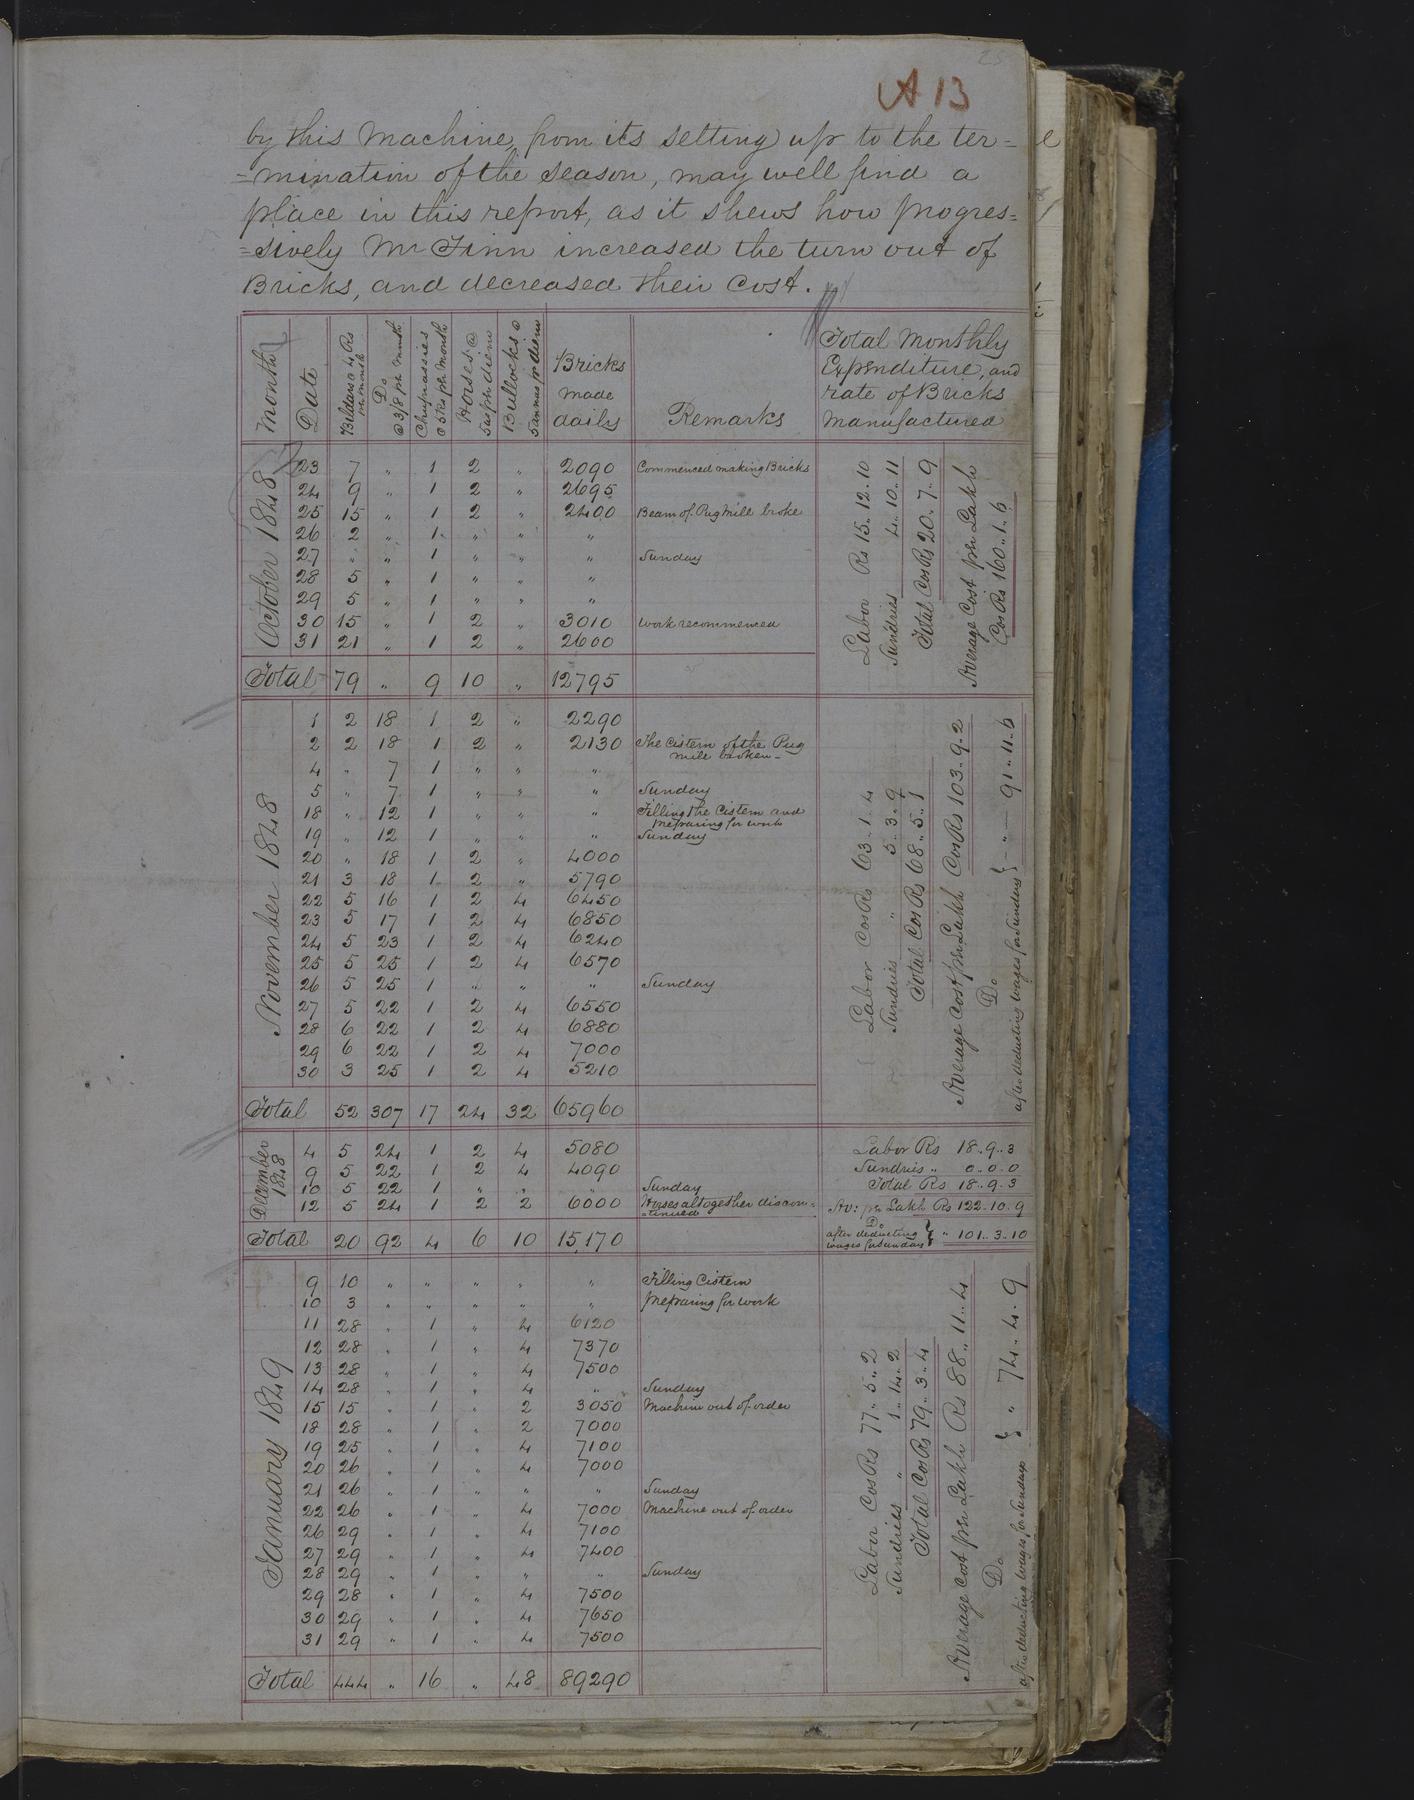 25
A 13
by this Machine, from its setting up to the ter=
=mination of the season, may well find a
place in this report, as it shews how progres=
=sively Mr Finn increased the turn out of
Bricks, and decreased their Cost.
Month Date Beldars @ 4 Rs pr month Do @ 3/8 pr month Chuprassies @ 5 Rs pr Month Horses @ 5 as pr diem Bullocks @ 5 annas pr diem Bricks made daily Remarks Total Monthly Expenditure, and rate of Bricks manufactured
October 1848
23 7 " 1 2 " 2090 Commenced making Bricks
24 9 " 1 2 " 2695
25 15 " 1 2 " 2400 Beam of Pug Mill broke
26 2 " 1 " " "
27 " " 1 " " " Sunday
28 5 " 1 " " "
29 5 " 1 " " "
30 15 " 1 2 " 3010 work recommenced
31 21 " 1 2 " 2600
Total 79 " 9 10 " 12795
Labor Rs 15..12..10
Sundries 4..10..11
Total Cos Rs 20..7..9
Average Cost per Lakh
Cos Rs 160..1..6
November 1848
1 2 18 1 2 " 2290
2 2 18 1 2 " 2130 The Cistern of the Pug
mill broken_
4 " 7 1 " " "
5 " 7 1 " " " Sunday
18 " 12 1 " " " Filling the Cistern and
preparing for work
19 " 12 1 " " " Sunday
20 " 18 1 2 " 4000
21 3 18 1 2 " 5790
22 5 16 1 2 4 6450
23 5 17 1 2 4 6850
24 5 23 1 2 4 6240
25 5 25 1 2 4 6570
26 5 25 1 " " " Sunday
27 5 22 1 2 4 6550
28 6 22 1 2 4 6880
29 6 22 1 2 4 7000
30 3 25 1 2 4 5210
Total 52 307 17 24 32 65960
Labor Cos Rs 63..1..4
Sundries " 5..3..9
Total Cos Rs 68..5..1
Average Cost per Lakh Cos Rs 103..9..2
Do
after deducting wages for Sundays } " 91..11..6
December 1848
4 5 24 1 2 4 5080
9 5 22 1 2 4 4090
10 5 22 1 " " " Sunday
12 5 24 1 2 2 6000 Horses altogether discon=
=tinued
Total 20 92 4 6 10 15,170
Labor Rs 18..9..3
Sundries .. 0..0..0
Total Rs 18..9..3
Av: pr Lakh Rs 122..10..9
Do
after deducting
wages for Sunday } " 101..3..10
January 1849
9 10 " " " " " Filling Cistern
10 3 " " " " " preparing for work
11 28 " 1 " 4 6120
12 28 " 1 " 4 7370
13 28 " 1 " 4 7500
14 28 " 1 " 4 " Sunday
15 15 " 1 " 2 3050 Machine out of order
18 28 " 1 " 2 7000
19 25 " 1 " 4 7100
20 26 " 1 " 4 7000
21 26 " 1 " " " Sunday
22 26 " 1 " 4 7000 Machine out of order
26 29 " 1 " 4 7100
27 29 " 1 " 4 7400
28 29 " 1 " " " Sunday
29 28 " 1 " 4 7500
30 29 " 1 " 4 7650
31 29 " 1 " 4 7500
Total 444 " 16 " 48 89290
Labor Cos Rs 77..5..2
Sundries " 1..14..2
Total Cos Rs 79..3..4
Average Cost per Lakh Rs 88..11..4
Do
after deducting wages for Sundays } " 74..4..9